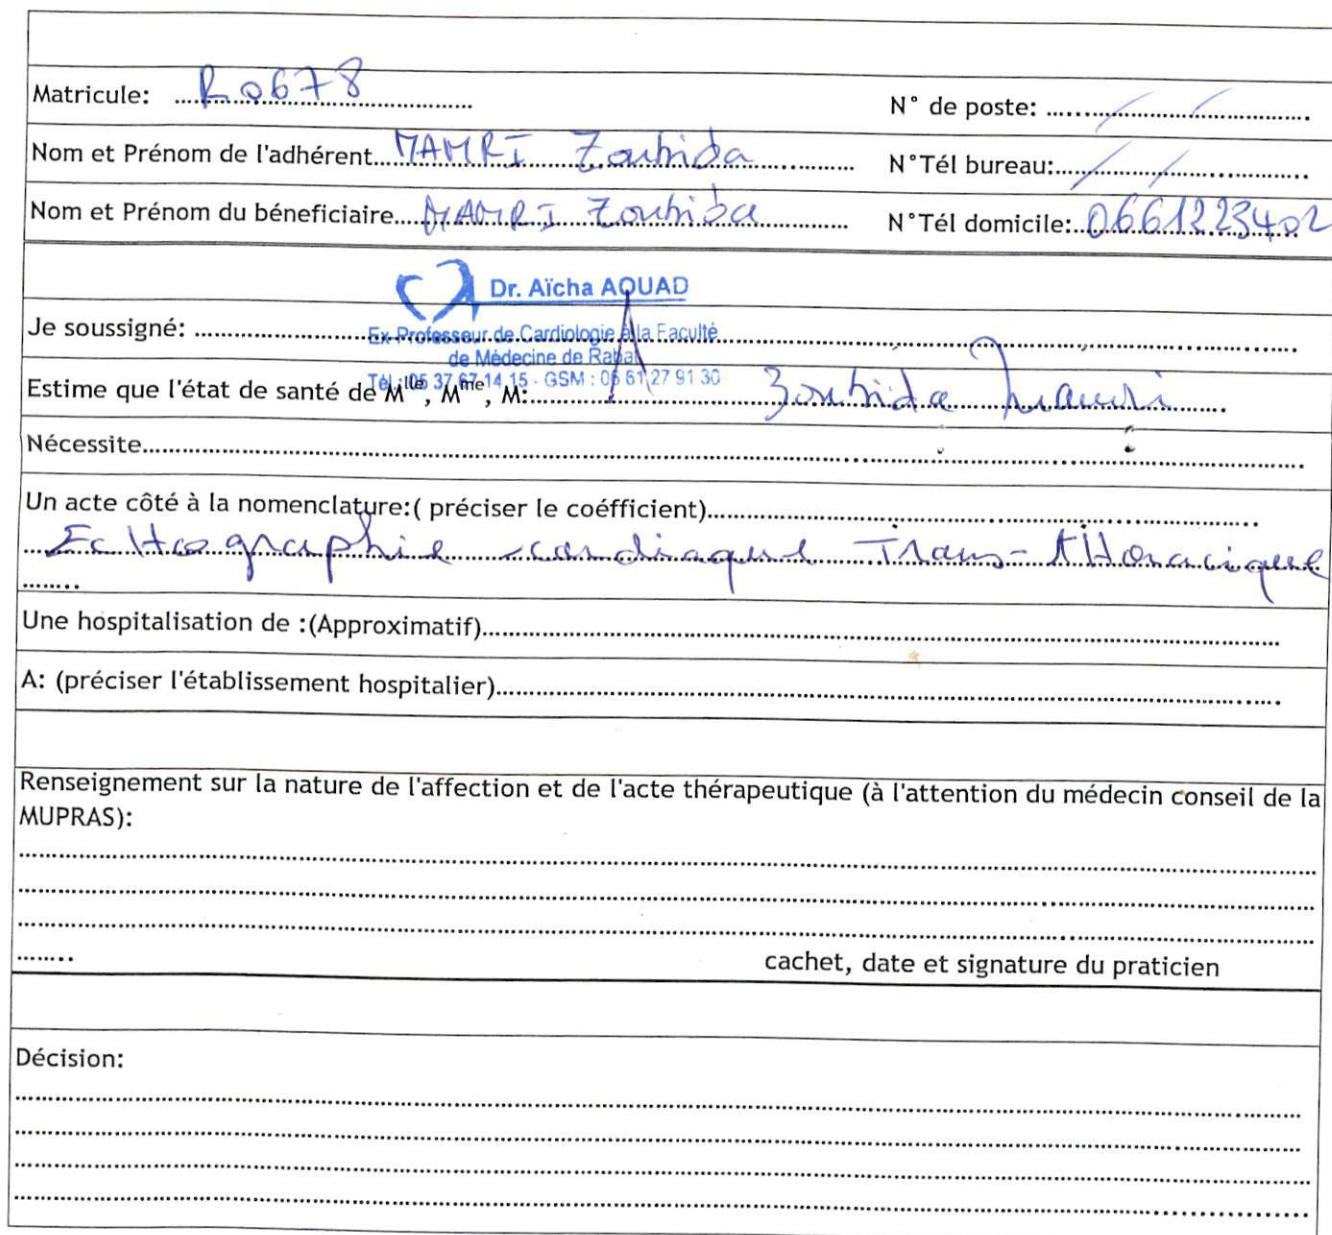 Matricule: R0678
N° de poste: ........//........
Nom et Prénom de l'adhérent....MAMRI Zoubida
N°Tél bureau:....//....
Nom et Prénom du béneficiaire....MAMRI Zoubida
N°Tél domicile:..0661223402
Dr. Aïcha AQUAD
Je soussigné: ........
Ex-Professeur de Cardiologie à la Faculté
de Médecine de Rabat
Tél : 05 37 67 14 15 - GSM : 06 61 27 91 30
Estime que l'état de santé de Mlle, Mme, M:........ Zoubida Mamri
Nécessite........
Un acte côté à la nomenclature:( préciser le coéfficient)........
Echographie cardiaque Trans-tHoracique
........
Une hospitalisation de :(Approximatif)........
A: (préciser l'établissement hospitalier)........
Renseignement sur la nature de l'affection et de l'acte thérapeutique (à l'attention du médecin conseil de la
MUPRAS):
cachet, date et signature du praticien
Décision: